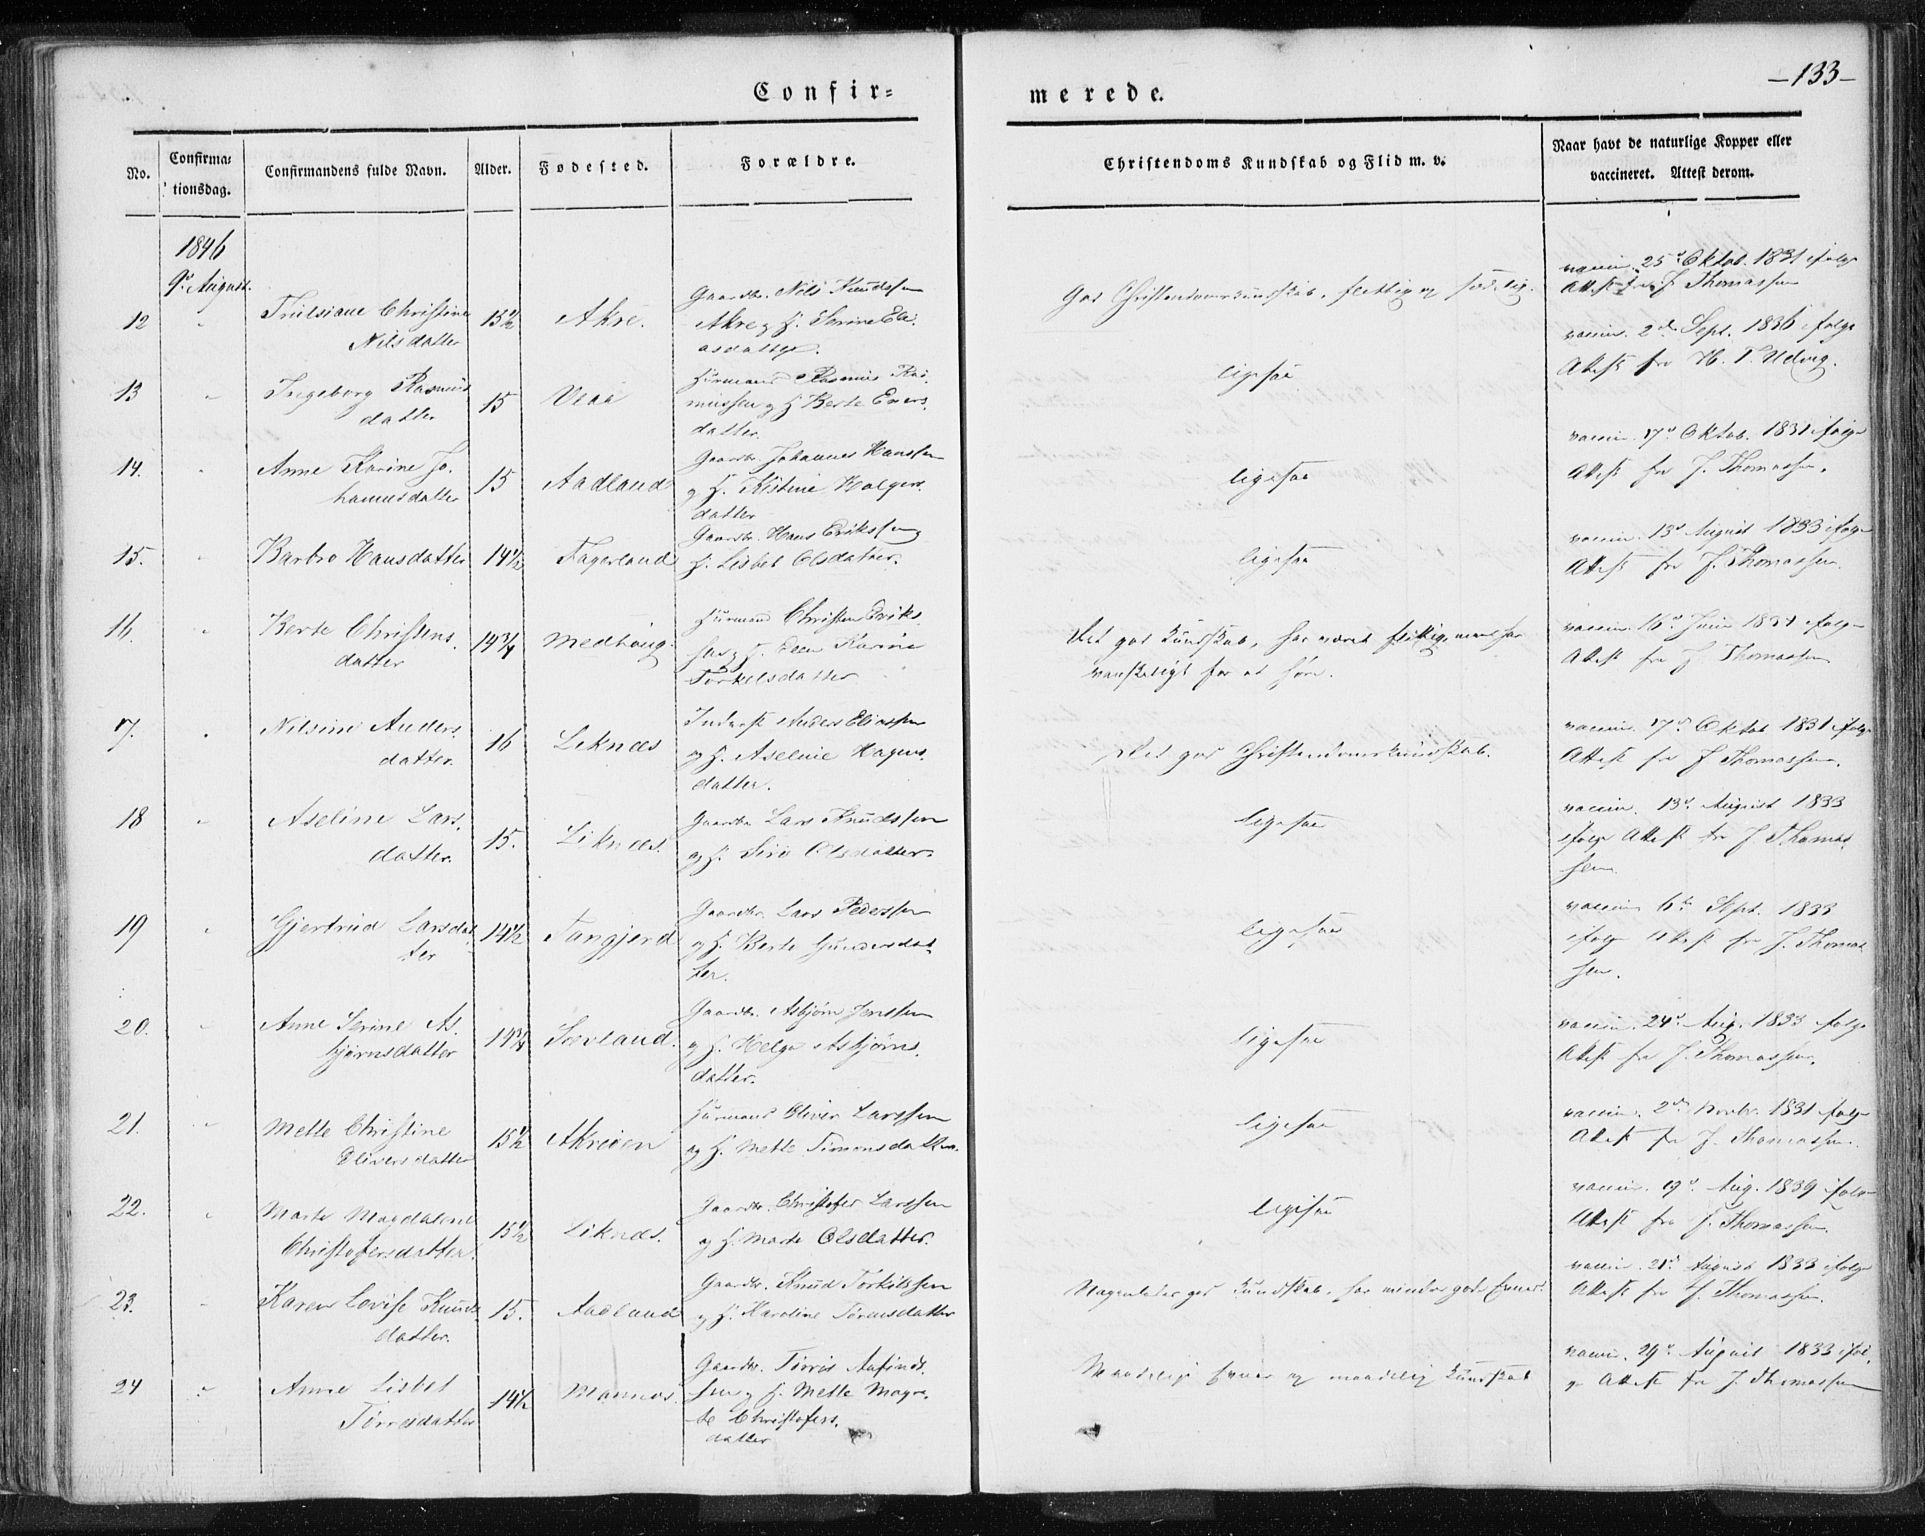 Confir=
merede.
—133—
No.
Confirma=
tionsdag.
Confirmandens fulde Navn.
Alder.
Fødested.
Forældre.
Christendoms Kundskab og Flid m. v.
Naar havt de naturlige Kopper eller
vaccineret. Attest derom.
1846
9de August.
12
Trulsiane Christine
Nilsdatter
15½
Akre.
Gaardbr. Nils Knudssen
Akre og H. Eli-
asdatter.
God Christendomskundskab, flittig og sædelig.
vaccin. 25de Oktob. 1831 ifølge
Attest fra J. Thomassen
13
Ingeborg Rasmus
datter
15
Veaa
Huusmand Rasmus Ras-
mussen og H. Berte Evers-
datter.
ligesaa
vaccin. 2de Sept. 1836 ifølge
Attest fra H. T. Udvig.
14.
Anne Karine Jo-
hannesdatter
15
Aadland
Gaardbr. Johannes Hanssen
og H. Kistine Holgers-
datter
ligesaa
vaccin. 17de Oktob. 1831 ifølge
Attest fra J. Thomassen.
15.
Barbro Hansdatter
14½
Fagerland
Gaardbr. Hans Erikssen og
H. Lisbet Olsdatter.
ligesaa
vaccin. 13de August 1833 ifølge
Attest fra J. Thomassen.
16.
Berte Christens-
datter
14¾
Medhoug
Huusmand Christen Eriks-
sen og H. Elen Karine
Torkelsdatter
Det god Kundskab, har været flittig, men har
vanskeligt for at høre.
vaccin. 16de Juni 1834 ifølge
Attest fra J. Thomassen
17.
Nilsine Anders-
datter.
16
Liknes
Inderst Anders Eliassen
og H. Aseline Hagens-
datter.
Det god Christendomskundskab.
vaccin. 17de Oktob 1831 ifølge
Attest fra J Thomassen.
18
Aseline Lars-
datter.
15.
Liknes.
Gaardbr. Lars Knudssen
og H. Siri Olsdatter.
ligesaa
vaccin. 13de August 1833
ifølge Attest fra J. Thomas-
sen.
19
Gjertrud Larsdat-
ter
14½
Tangjerd
Gaardbr. Lars Pederssen
og H. Berte Gunnersdat-
ter.
ligesaa
vaccin 6te Sept. 1833
ifølge Attest fra J. Thomas
sen.
20.
Anne Serine As-
bjørnsdatter
14¾
Sævland.
Gaardbr. Asbjørn Jenssen
og H. Helge Asbjørns-
datter.
ligesaa
vaccin. 24de Aug. 1833 ifølge
Attest fra J. Thomassen.
21.
Mette Christine
Oliversdatter
15½
Akreøen
Huusmand Oliver Larssen
og H. Mette Simonsdatter.
ligesaa
vaccin. 2den Novbr. 1831 ifølge
Attest fra J. Thomassen.
22.
Marte Magdalene
Christofersdatter.
15½
Liknes.
Gaardbr. Christofer Larssen
og H. Marte Olsdatter.
ligesaa
vaccin. 19de Aug. 1839 ifølge
Attest fra J. Thomassen.
23.
Karen Lovise Knuds
datter.
15.
Aadland
Gaardbr. Knud Torkilssen
og H. Karoline Tørresdatter
Nogenledes god Kundskab, har mindre gode Evner.
vaccin. 21de August 1833 ifølge
Attest fra J. Thomassen.
24
Anne Lisbet
Tørresdatter
14½
Mannes.
Gaardbr. Tørris Anfinds-
sen og H. Mette Magre-
te Christofers-
datter
Maadelige Evner og maadelig Kundskab
vaccin. 29de August 1833 iføl-
ge Attest fra J. Thomassen